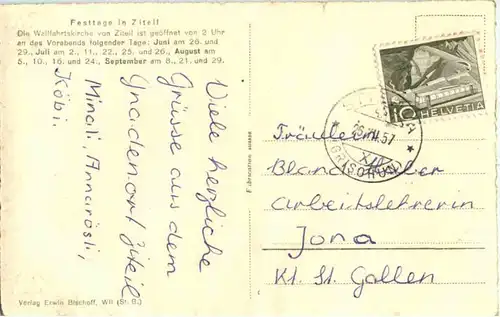 Festtage in Ziteil
Die Wallfahrtskirche von Ziteil ist geöffnet von 2 Uhr
an des Vorabends folgender Tage: Juni am 26. und
29., Juli am 2., 11., 22., 25. und 26., August am
5., 10., 16. und 24., September am 8., 21. und 29.
Viele herzliche
Grüsse aus dem
Gnadenort Ziteil
Minali, Annarösli,
Köbi.
Verlag Erwin Bischoff, Wil (St. G.)
Fabrication suisse
10 HELVETIA
57
(GRISCHUN)
Fräulein
Blanda
Arbeitslehrerin
Jona
Kt. St. Gallen